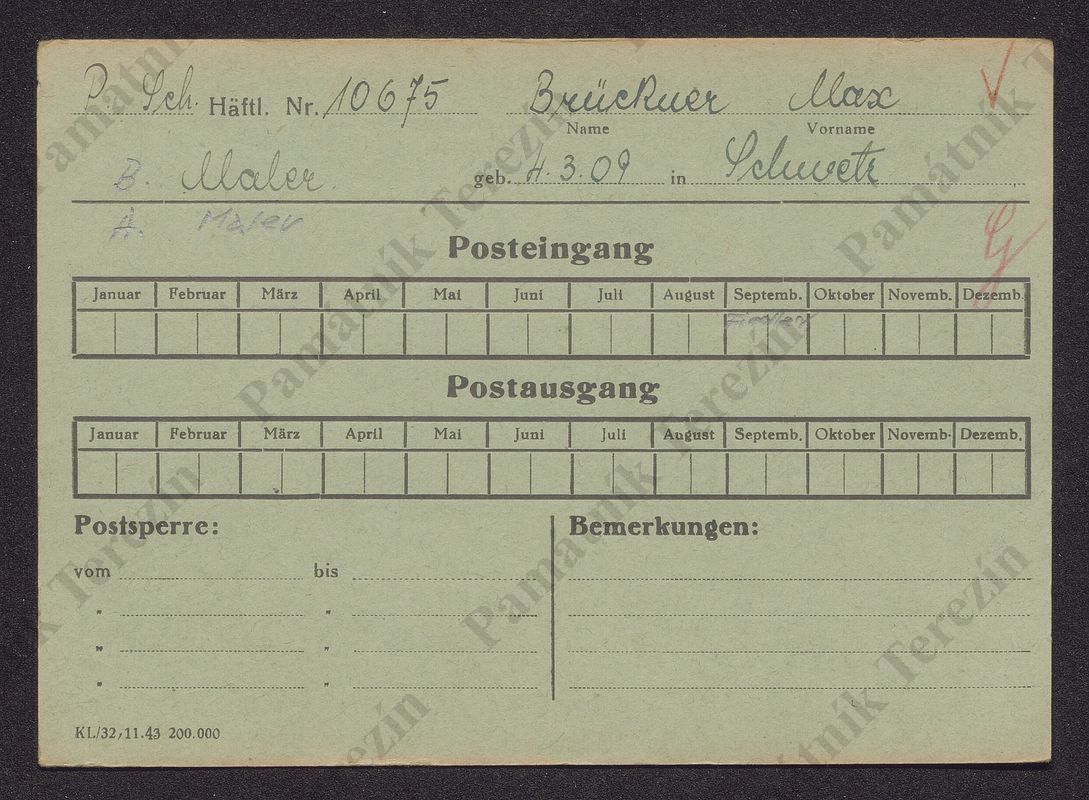 P. Sch. Häftl. Nr. 10675 Brückner Max
Name Vorname
B. Maler. geb. 4.3.09 in Schwetz
A. Maler
Posteingang
Januar Februar März April Mai Juni Juli August Septemb. Oktober Novemb. Dezemb.
Postausgang
Januar Februar März April Mai Juni Juli August Septemb. Oktober Novemb. Dezemb.
Postsperre: Bemerkungen:
vom bis
" "
" "
" "
KL/32, 11.43 200.000
Památník Terezín